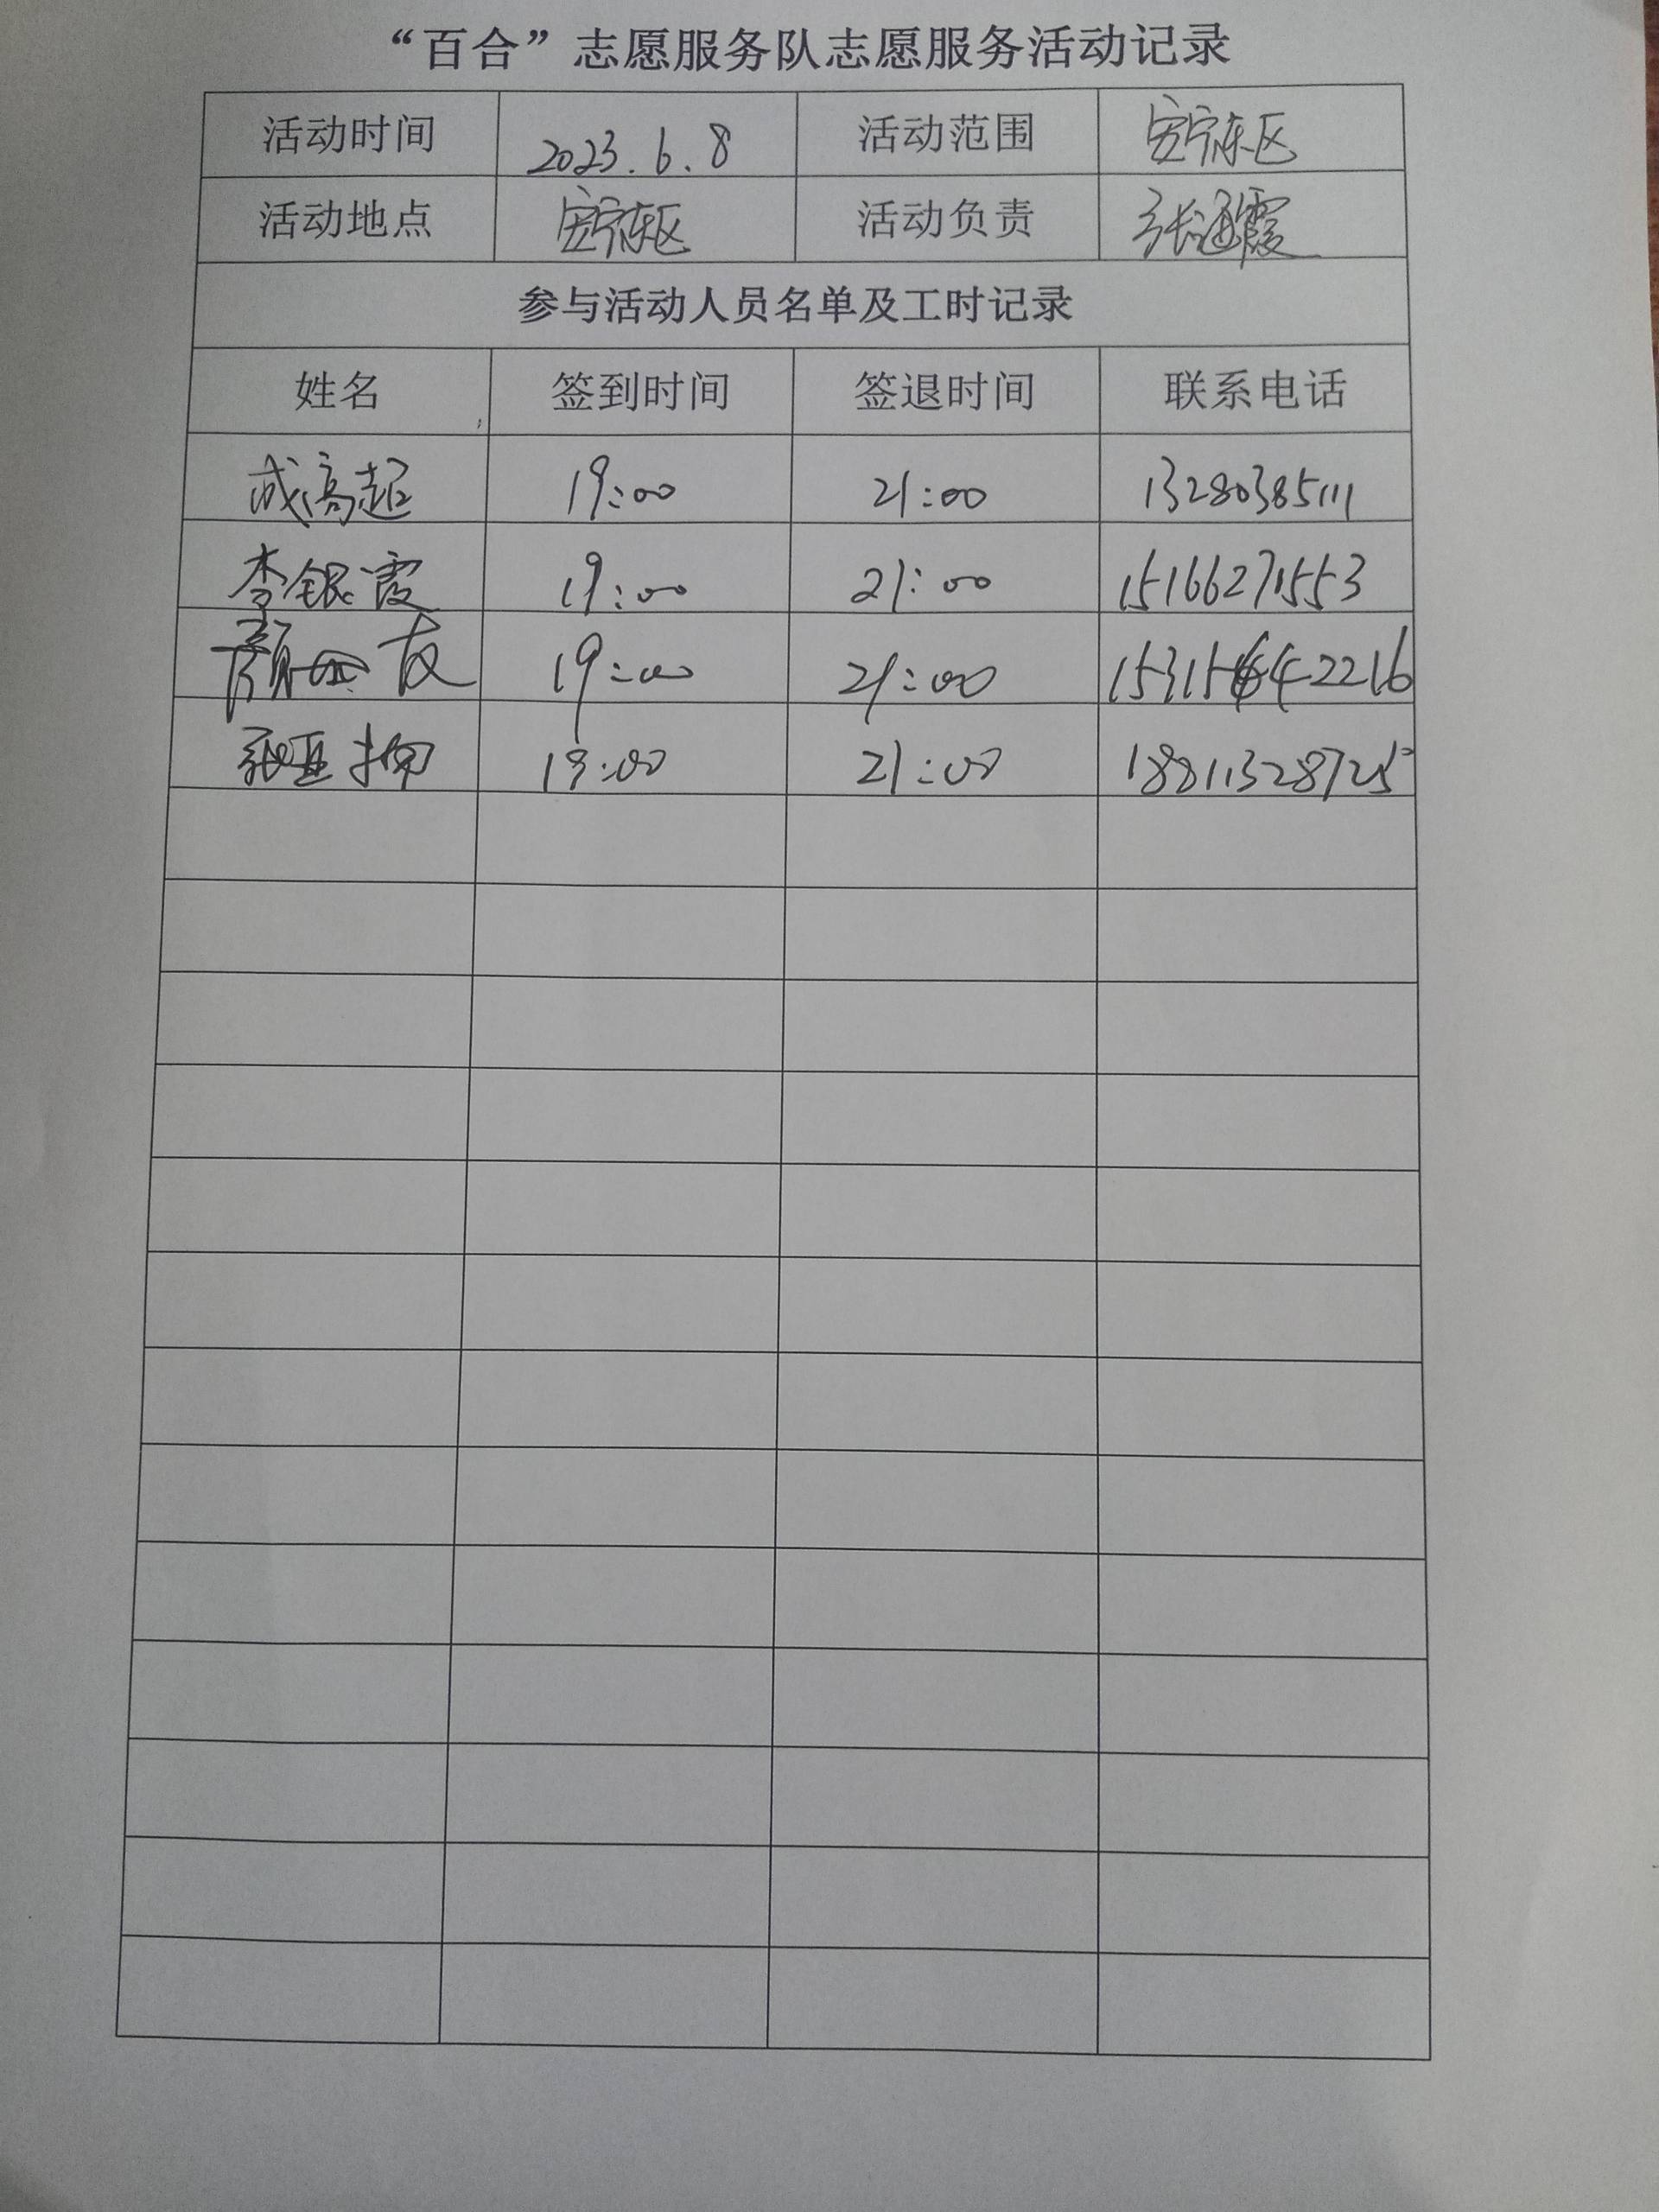 “百合”志愿服务队志愿服务活动记录
活动时间 2023.6.8 活动范围 安宁东区
活动地点 安宁东区 活动负责 张通霞
参与活动人员名单及工时记录
姓名 签到时间 签退时间 联系电话
成高超 19:00 21:00 13280385111
李银霞 19:00 21:00 15166271553
颜 友 19:00 21:00
张亚 19:00 21:00 18811328725